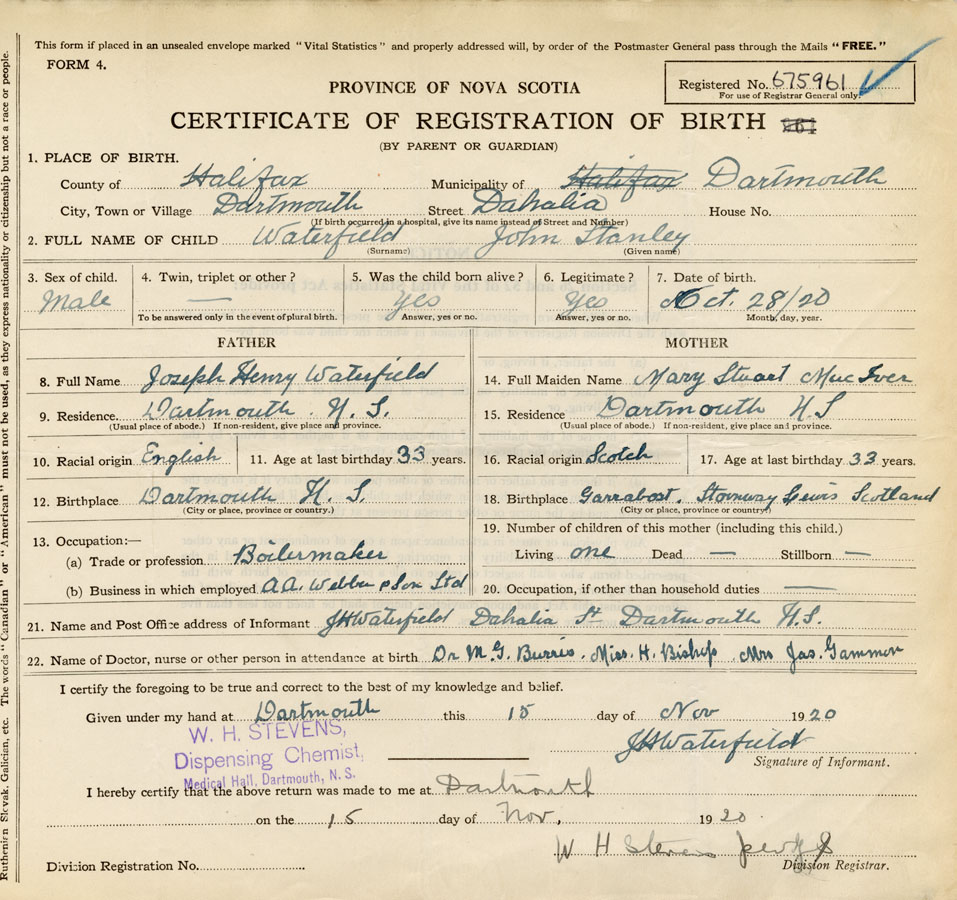 This form if placed in an unsealed envelope marked "Vital Statistics" and properly addressed will, by order of the Postmaster General pass through the Mails "FREE."
FORM 4.
Registered No. 675961
For use of Registrar General only.
PROVINCE OF NOVA SCOTIA
CERTIFICATE OF REGISTRATION OF BIRTH
(BY PARENT OR GUARDIAN)
1. PLACE OF BIRTH.
County of Halifax Municipality of Halifax Dartmouth
City, Town or Village Dartmouth Street Dahalia House No.
(If birth occurred in a hospital, give its name instead of Street and Number)
2. FULL NAME OF CHILD Waterfield John Stanley
(Surname) (Given name)
3. Sex of child. 4. Twin, triplet or other? 5. Was the child born alive? 6. Legitimate? 7. Date of birth.
Male — Yes Yes Oct. 28/20
To be answered only in the event of plural birth. Answer, yes or no. Answer, yes or no. Month, day, year.
FATHER
8. Full Name Joseph Henry Waterfield
9. Residence Dartmouth. N. S.
(Usual place of abode.) If non-resident, give place and province.
10. Racial origin English 11. Age at last birthday 33 years.
12. Birthplace Dartmouth N. S.
(City or place, province or country.)
13. Occupation:—
(a) Trade or profession Boilermaker
(b) Business in which employed A.A. Webber & Son Ltd
MOTHER
14. Full Maiden Name Mary Stuart MacIver
15. Residence Dartmouth N.S
(Usual place of abode.) If non-resident, give place and province.
16. Racial origin Scotch 17. Age at last birthday 33 years.
18. Birthplace Garrabost. Stornway Lewis Scotland
(City or place, province or country)
19. Number of children of this mother (including this child.)
Living one Dead — Stillborn —
20. Occupation, if other than household duties —
21. Name and Post Office address of Informant JHWaterfield Dahalia St Dartmouth N.S.
22. Name of Doctor, nurse or other person in attendance at birth Dr M. G. Burris. Miss. H. Bishop. Mrs Jas. Gammon
I certify the foregoing to be true and correct to the best of my knowledge and belief.
Given under my hand at Dartmouth this 15 day of Nov 1920
JHWaterfield
Signature of Informant.
W. H. STEVENS,
Dispensing Chemist,
Medical Hall, Dartmouth, N. S.
I hereby certify that the above return was made to me at Dartmouth
on the 15 day of Nov, 1920.
W H Stevens
Division Registration No. Division Registrar.
Ruthenian Slovak, Galician, etc. The words "Canadian" or "American" must not be used, as they express nationality or citizenship but not a race or people.